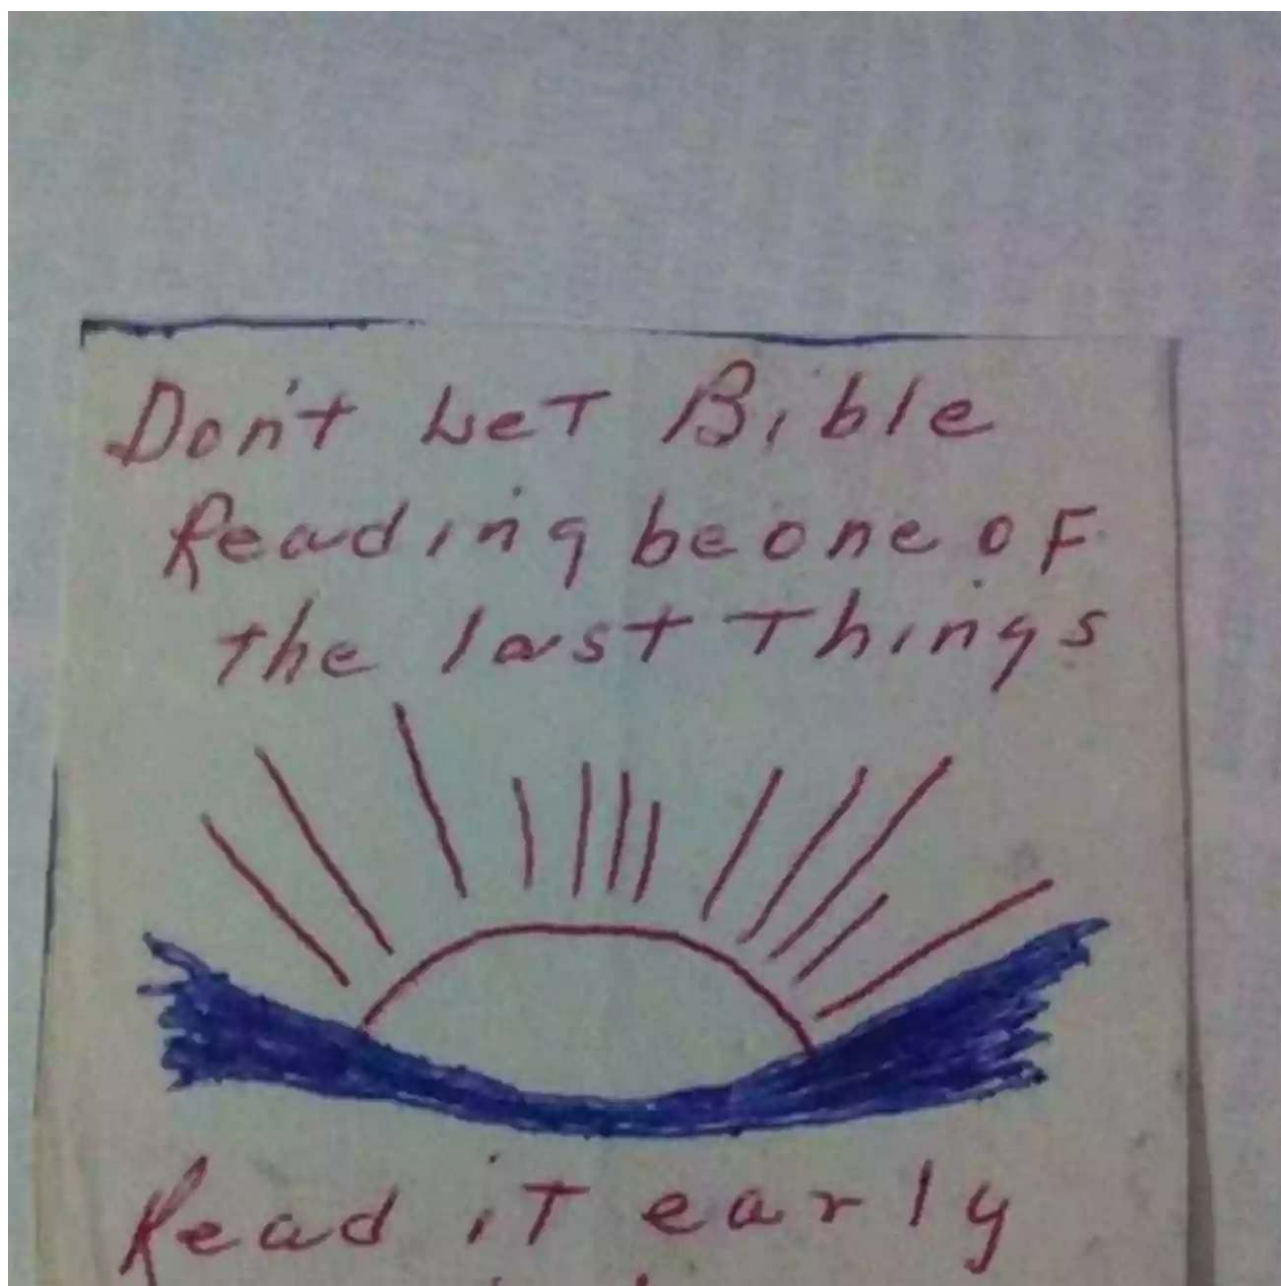 Don't Let Bible
Reading be one of
the last Things
Read iT early